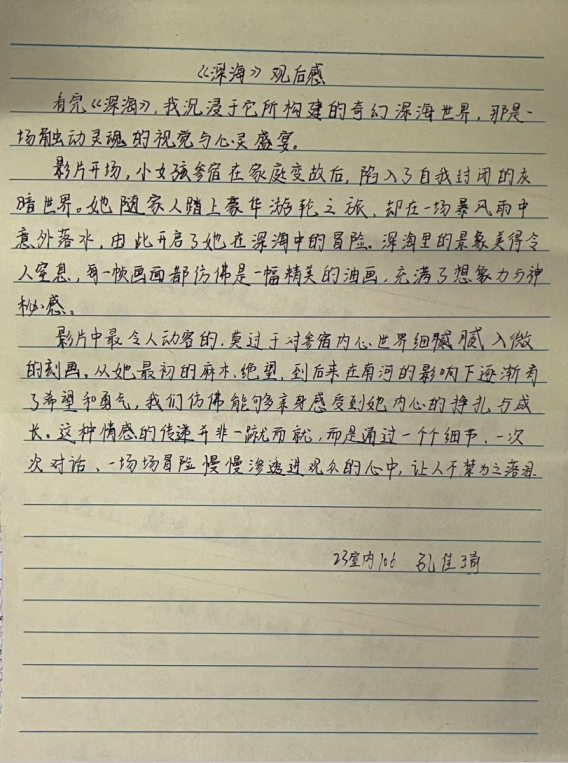 《深海》观后感
看完《深海》,我沉浸于它所构建的奇幻深海世界,那是一
场触动灵魂的视觉与心灵盛宴。
影片开场,小女孩参宿在家庭变故后,陷入了自我封闭的灰
暗世界。她随家人踏上豪华游轮之旅,却在一场暴风雨中
意外落水,由此开启了她在深海中的冒险。深海里的景象美得令
人窒息,每一帧画面都仿佛是一幅精美的油画,充满了想象力与神
秘感。
影片中最令人动容的,莫过于对参宿内心世界细腻腻入微
的刻画。从她最初的麻木、绝望,到后来在南河的影响下逐渐有
了希望和勇气,我们仿佛能够亲身感受到她内心的挣扎与成
长。这种情感的传递并非一蹴而就,而是通过一个个细节、一次
次对话、一场场冒险慢慢渗透进观众的心中,让人不禁为之落泪.
23室内106 孔佳琦